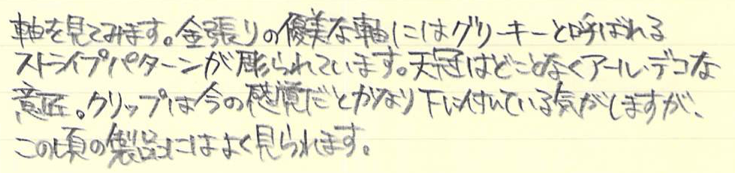 軸を見てみます。金張りの優美な軸にはグリーキーと呼ばれる
ストライプパターンが彫られています。天冠はどことなくアール・デコな
意匠。クリップは今の感覚だとかなり下に付いている気がしますが、
この頃の製品にはよく見られます。